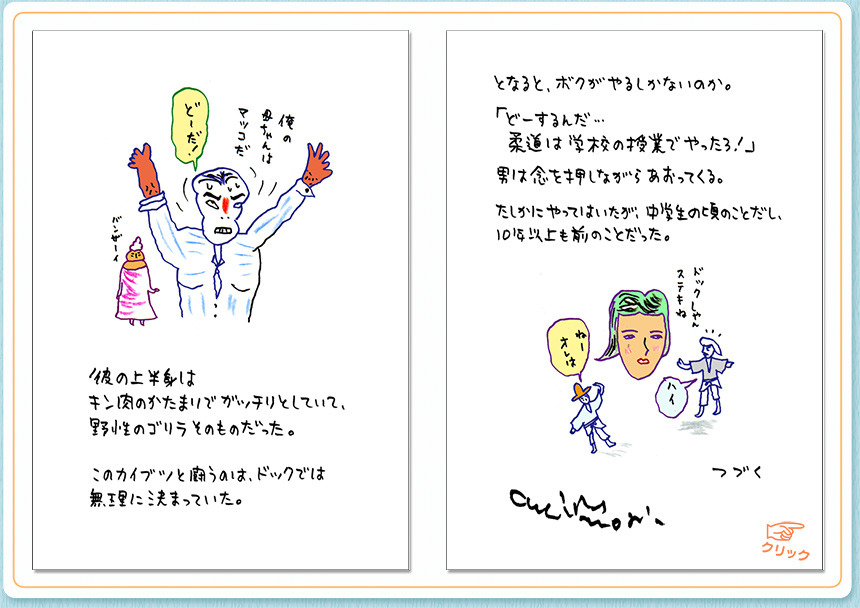 どーだ!
俺の
母ちゃんは
マツコだ
バンザーイ
彼の上半身は
キン肉のかたまりでガッチリとしていて、
野性のゴリラそのものだった。
このカイブツと闘うのは、ドックでは
無理に決まっていた。
となると、ボクがやるしかないのか。
「どーするんだ…
柔道は学校の授業でやったろ!」
男は念を押しながらあおってくる。
たしかにやってはいたが、中学生の頃のことだし、
10年以上も前のことだった。
ドックしゃん
ステキね
ねー
オレは
ハイ
つづく
クリック